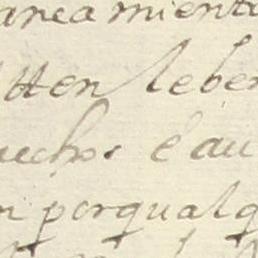 aneamiento
tten leber
uechos é au
n porqualq